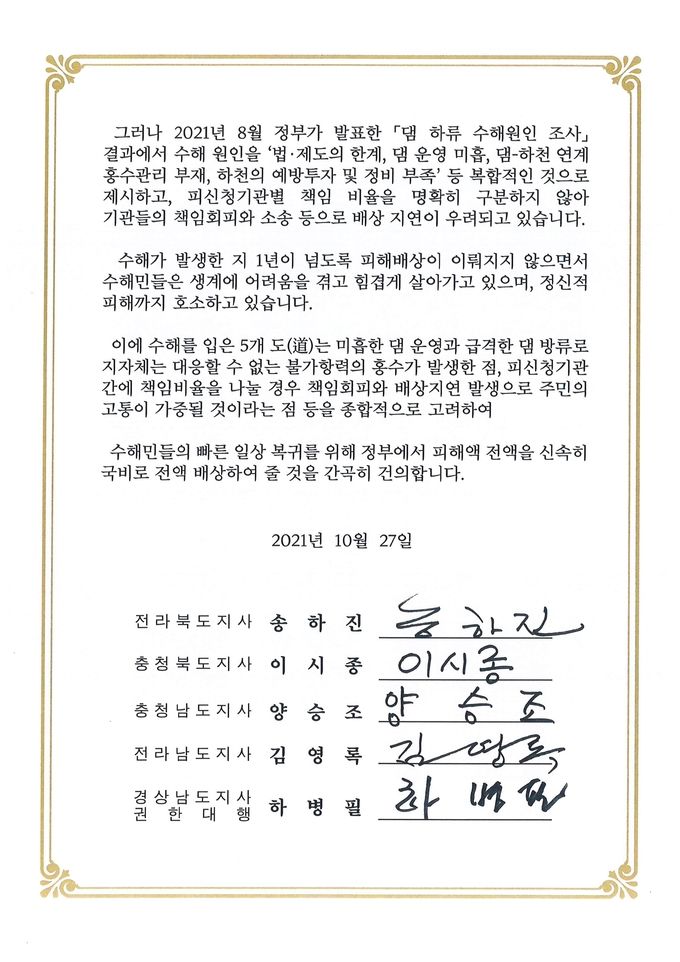 그러나 2021년 8월 정부가 발표한 「댐 하류 수해원인 조사」
결과에서 수해 원인을 ‘법·제도의 한계, 댐 운영 미흡, 댐-하천 연계
홍수관리 부재, 하천의 예방투자 및 정비 부족’ 등 복합적인 것으로
제시하고, 피신청기관별 책임 비율을 명확히 구분하지 않아
기관들의 책임회피와 소송 등으로 배상 지연이 우려되고 있습니다.
수해가 발생한 지 1년이 넘도록 피해배상이 이뤄지지 않으면서
수해민들은 생계에 어려움을 겪고 힘겹게 살아가고 있으며, 정신적
피해까지 호소하고 있습니다.
이에 수해를 입은 5개 도(道)는 미흡한 댐 운영과 급격한 댐 방류로
지자체는 대응할 수 없는 불가항력의 홍수가 발생한 점, 피신청기관
간에 책임비율을 나눌 경우 책임회피와 배상지연 발생으로 주민의
고통이 가중될 것이라는 점 등을 종합적으로 고려하여
수해민들의 빠른 일상 복귀를 위해 정부에서 피해액 전액을 신속히
국비로 전액 배상하여 줄 것을 간곡히 건의합니다.
2021년 10월 27일
전라북도지사 송하진 송하진
충청북도지사 이시종 이시종
충청남도지사 양승조 양승조
전라남도지사 김영록 김영록
경상남도지사
권한대행 하병필 하병필